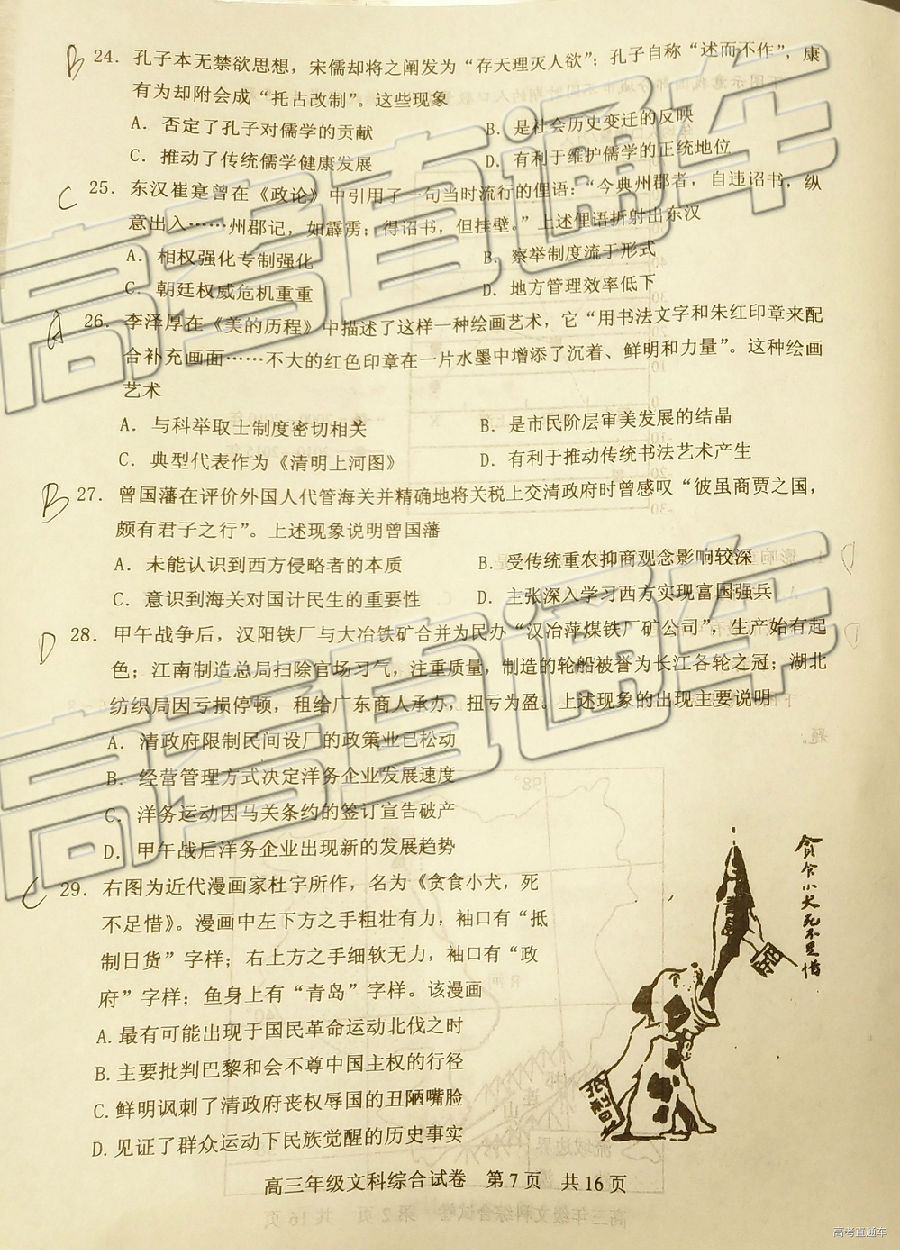 B 24. 孔子本无禁欲思想，宋儒却将之阐发为“存天理灭人欲”；孔子自称“述而不作”，康
有为却附会成“托古改制”。这些现象
A. 否定了孔子对儒学的贡献 B. 是社会历史变迁的反映
C. 推动了传统儒学健康发展 D. 有利于维护儒学的正统地位
C 25. 东汉崔寔曾在《政论》中引用了一句当时流行的俚语：“今典州郡者，自违诏书，纵
意出入……州郡记，如霹雳；得诏书，但挂壁。”上述俚语折射出东汉
A. 相权强化专制强化 B. 察举制度流于形式
C. 朝廷权威危机重重 D. 地方管理效率低下
A 26. 李泽厚在《美的历程》中描述了这样一种绘画艺术，它“用书法文字和朱红印章来配
合补充画面……不大的红色印章在一片水墨中增添了沉着、鲜明和力量”。这种绘画
艺术
A. 与科举取士制度密切相关 B. 是市民阶层审美发展的结晶
C. 典型代表作为《清明上河图》 D. 有利于推动传统书法艺术产生
B 27. 曾国藩在评价外国人代管海关并精确地将关税上交清政府时曾感叹“彼虽商贾之国，
颇有君子之行”。上述现象说明曾国藩
A. 未能认识到西方侵略者的本质 B. 受传统重农抑商观念影响较深
C. 意识到海关对国计民生的重要性 D. 主张深入学习西方实现富国强兵
D 28. 甲午战争后，汉阳铁厂与大冶铁矿合并为民办“汉冶萍煤铁厂矿公司”，生产始有起
色；江南制造总局扫除官场习气，注重质量，制造的轮船被誉为长江各轮之冠；湖北
纺织局因亏损停顿，租给广东商人承办，扭亏为盈。上述现象的出现主要说明
A. 清政府限制民间设厂的政策业已松动
B. 经营管理方式决定洋务企业发展速度
C. 洋务运动因马关条约的签订宣告破产
D. 甲午战后洋务企业出现新的发展趋势
C 29. 右图为近代漫画家杜宇所作，名为《贪食小犬，死
不足惜》。漫画中左下方之手粗壮有力，袖口有“抵
制日货”字样；右上方之手细软无力，袖口有“政
府”字样；鱼身上有“青岛”字样。该漫画
A. 最有可能出现于国民革命运动北伐之时
B. 主要批判巴黎和会不尊中国主权的行径
C. 鲜明讽刺了清政府丧权辱国的丑陋嘴脸
D. 见证了群众运动下民族觉醒的历史事实
贪食小犬死不足惜
高三年级文科综合试卷 第7页 共16页
高考直通车
高考直通车
高考直通车